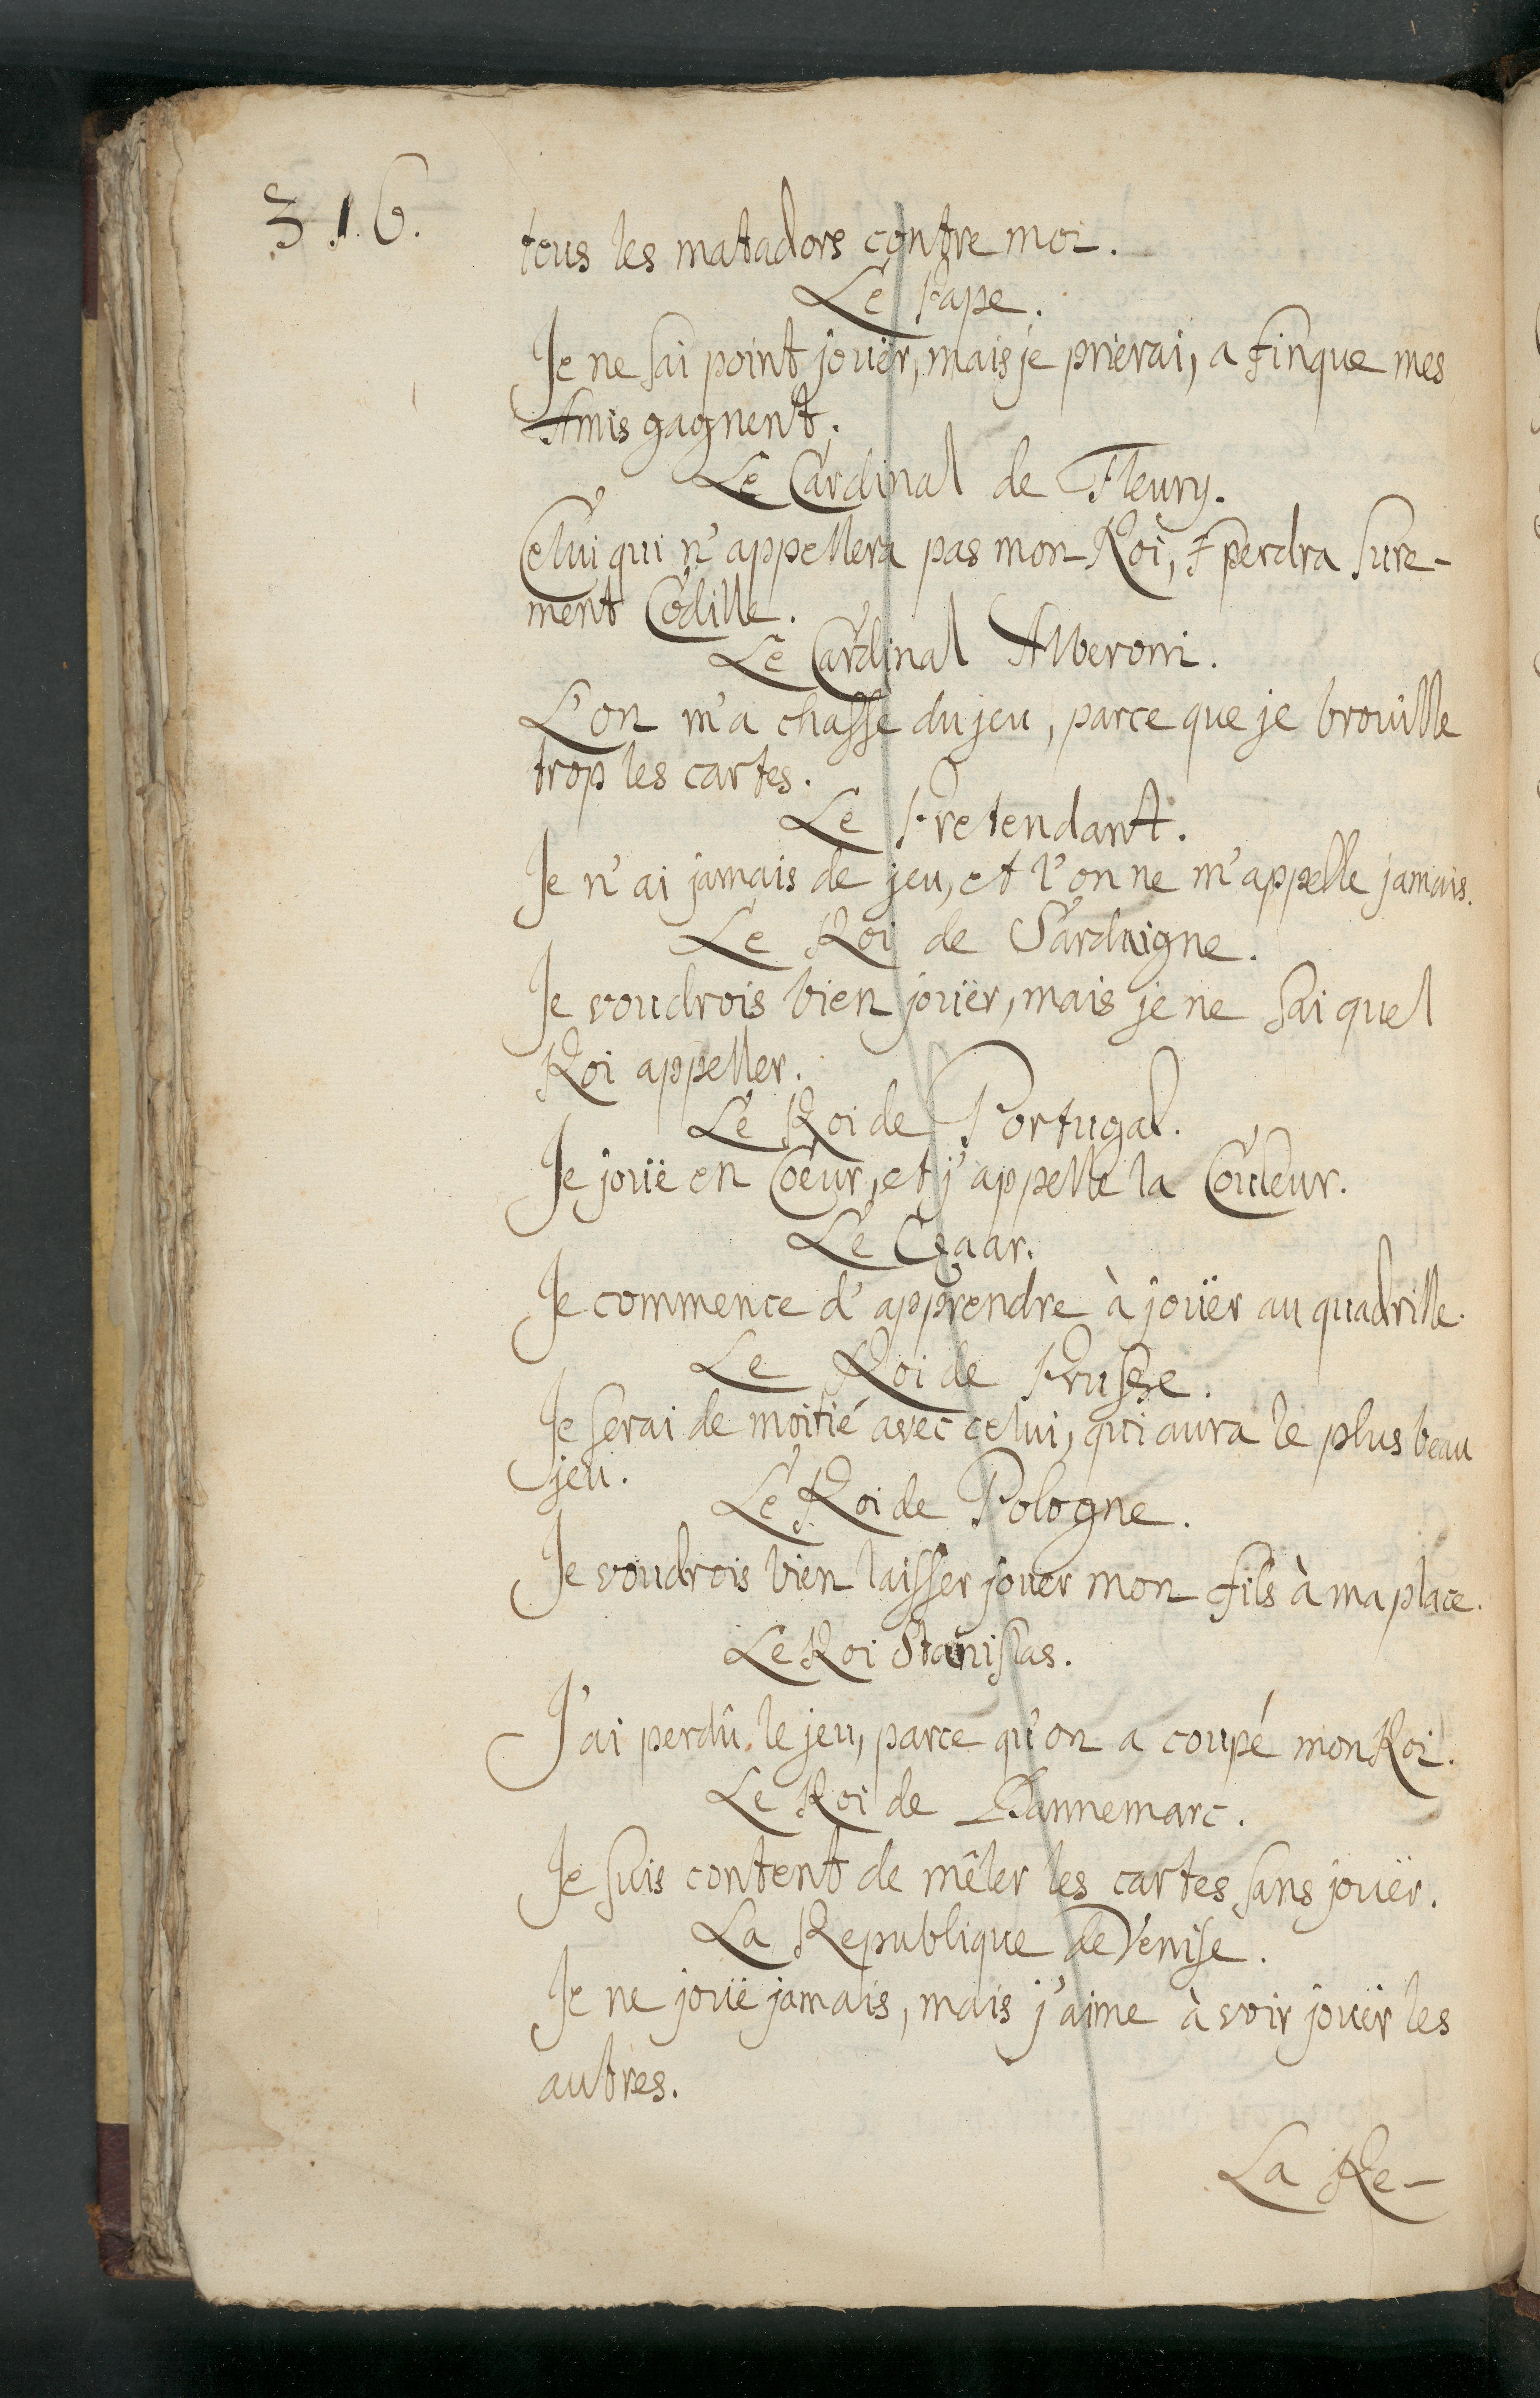 316.
tous les matadors contre moi.
Le Pape.
Je ne sai point jouër, mais je prierai, a fin que mes
Amis gagnent.
Le Cardinal de Fleury.
Celui qui n'appellera pas mon Roi, perdra sure-
ment Codille.
Le Cardinal Alberoni.
L'on m'a chassé du jeu, parce que je brouille
trop les cartes.
Le Pretendant.
Je n'ai jamais de jeu, et l'on ne m'appelle jamais.
Le Roi de Sardaigne.
Je voudrois bien jouër, mais je ne sai quel
Roi appeller.
Le Roi de Portugal.
Je jouë en Coeur, et j'appelle la Couleur.
Le Czaar.
Je commence d'apprendre à jouër au quadrille.
Le Roi de Prusse.
Je serai de moitié avec celui, qui aura le plus beau
jeu.
Le Roi de Pologne.
Je voudrois bien laisser jouer mon fils à ma place.
Le Roi Stanislas.
J'ai perdû le jeu, parce qu'on a coupé mon Roi.
Le Roi de Dannemarc.
Je suis content de mêler les cartes sans jouër.
La Republique de Venise.
Je ne jouë jamais, mais j'aime à voir jouër les
autres.
La Re-